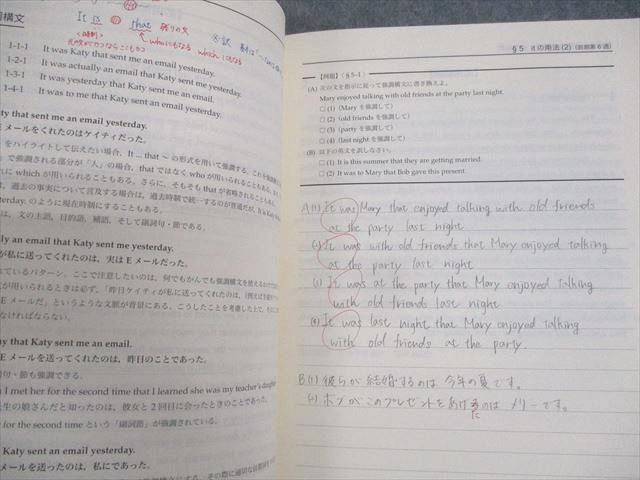 構文
It is 強 that 残りの文
〈時制〉
whoにもなる whichにもなる
1-1-1 It was Katy that sent me an email yesterday.
1-2-1 It was actually an email that Katy sent me yesterday.
1-3-1 It was yesterday that Katy sent me an email.
1-4-1 It was to me that Katy sent an email yesterday.
Katy that sent me an email yesterday.
Eメールをくれたのはケイティだった。
をハイライトして伝えたい場合，It … that ～ の形式を用いて強調する。
で強調される部分が「人」の場合，that ではなく who が用いられることもある。
に which が用いられることもある。さらに，そもそも that が省略されることもある。
は，過去の事実について言及する場合は，過去時制で統一するのが普通だが，
yesterday. のように現在時制にすることもある。
は，文の主語，目的語，補語，そして副詞句・節である。
ly an email that Katy sent me yesterday.
が私に送ってくれたのは，実は E メールだった。
ているパターン。ここで注意したいのは，何でもかんでも強調構文を使えるわけで
が用いられるときは必ず，「昨日ケイティが私に送ってくれたのは，
E メールだ」というような文脈が背景にある。こうしたことを考慮した上で，
なければならない。
day that Katy sent me an email.
E メールを送ってくれたのは，昨日のことであった。
節も強調できる。
n I met her for the second time that I learned she was my teacher's daughter.
先生の娘さんだと知ったのは，彼女と2回目に会ったときのことであった。
for the second time という「副詞節」が強調されている。
Katy sent an email yesterday.
ールを送ったのは，私にであった。
§5 it の用法(2) (前期第6週)
【例題】〈§5-1〉
(A) 次の文を指示に従って強調構文に書き換えよ。
Mary enjoyed talking with old friends at the party last night.
□(1) (Mary を強調して)
□(2) (old friends を強調して)
□(3) (party を強調して)
□(4) (last night を強調して)
(B) 以下の英文を訳しなさい。
□(1) It is this summer that they are getting married.
□(2) It was to Mary that Bob gave this present.
A(1) It was Mary that enjoyed talking with old friends
at the party last night.
It was with old friends that Mary enjoyed talking
at the party last night
It was at the party that Mary enjoyed talking
with old friends last night
It was last night that Mary enjoyed talking
with old friends at the party.
B(1) 彼らが結婚するのは今年の夏です。
ボブがこのプレゼントをあげるのはメリーです。
た
に